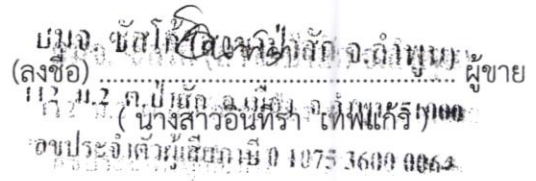 บมจ. ซัสโก้ ป่าสัก จ.ลำพูน
(ลงชื่อ) ผู้ขาย
ม.2 ต.ป่าสัก อ.เมือง จ. 51000
( นางสาวอินทิรา เทพแก้ว )
ประจำตัวผู้เสียภาษี 0 1075 3600